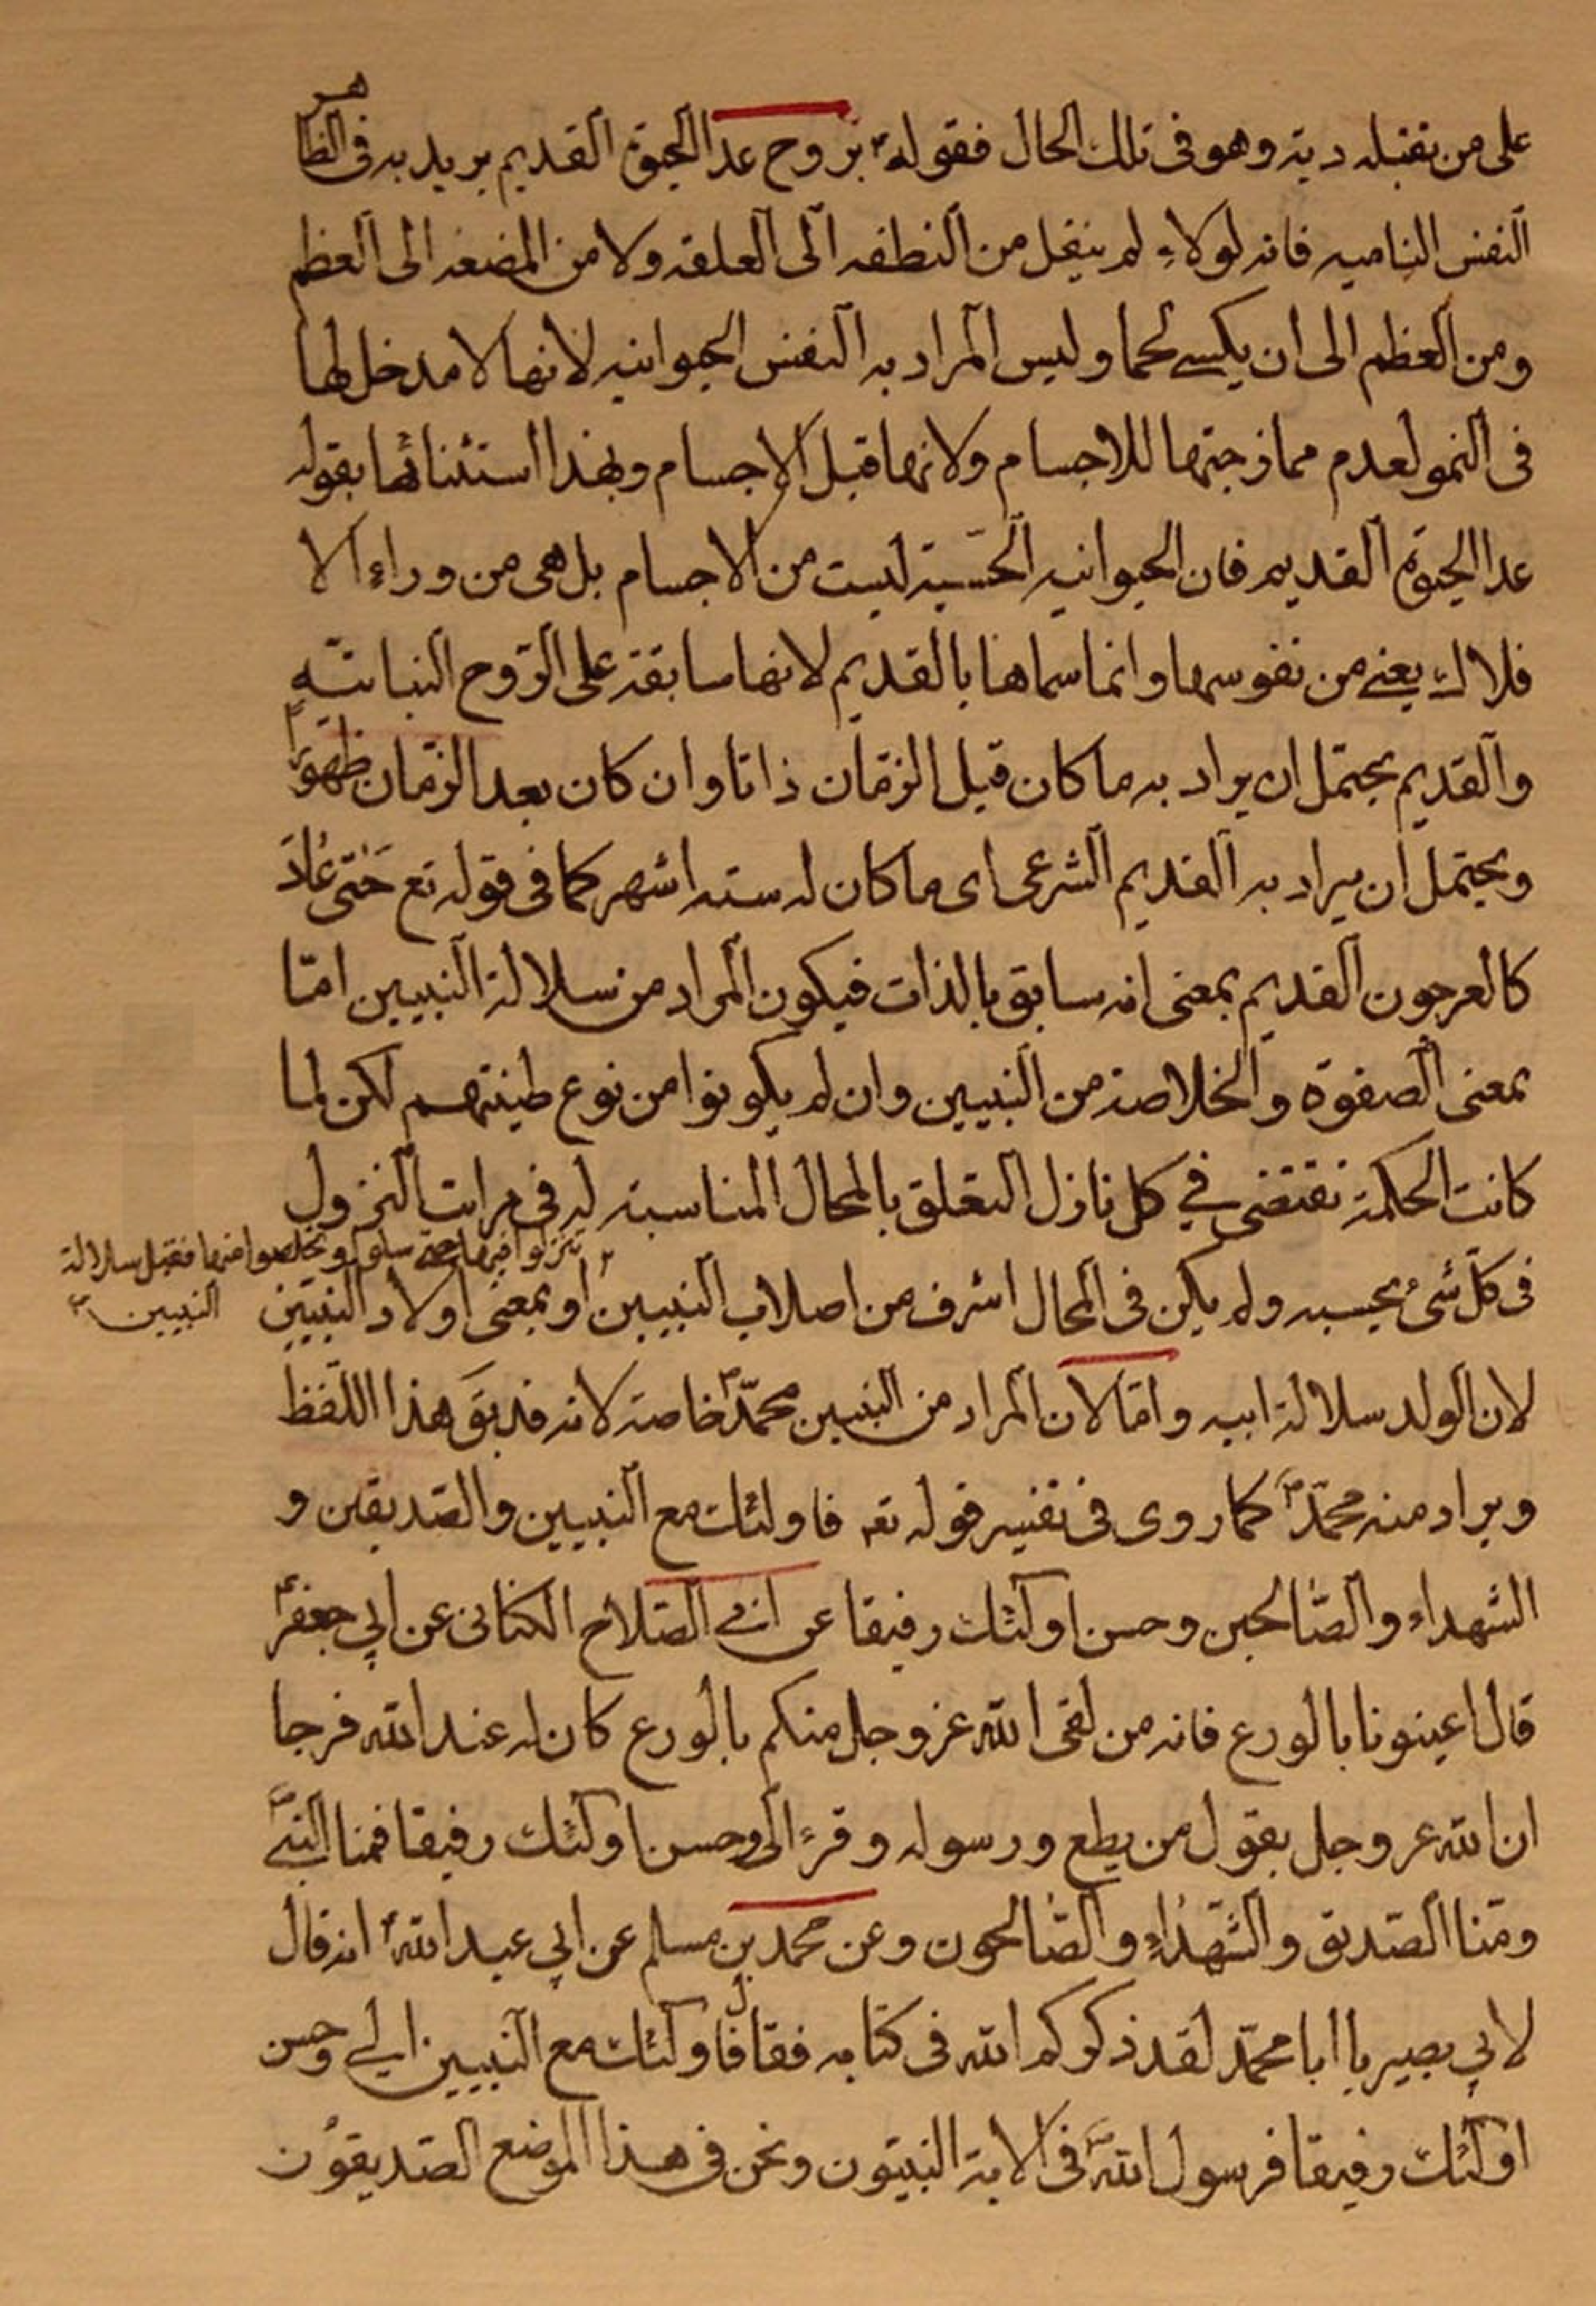 على من نقتله دية وهو فى تلك الحال فقوله ع بروح عدا الحيوة القديم يريد به فى الظاهر
النفس الناميه فانه لولاه لم ينتقل من النطفه الى العلقه ولا من المضغه الى العظم
ومن العظم الى ان يكسى لحما وليس المراد به النفس الحيوانيه لانها لا مدخل لها
فى النمو لعدم ممازجتها للاجسام ولانها قبل الاجسام ولهذا استثنائها بقوله
عدا الحيوة القديم فان الحيوانيه الحسّية ليست من الاجسام بل هى من وراء الا
فلاك يعنى من نفوسها وانما سماها بالقديم لانها سابقة على الرّوح النباتيّه
والقديم يحتمل ان يراد به ما كان قبل الزمان ذاتا وان كان بعد الزمان ظهورا
ويحتمل ان يراد به القديم الشرعى اى ما كان له سته اشهر كما فى قوله تع حَتى عٰادَ
كالعرجون القديم بمعنى انه سابق بالذات فيكون المراد من سلالة النبيين امّا
بمعنى الصفوة والخلاصة من النبيين وان لم يكونوا من نوع طينتهم لكن لما
كانت الحكمة تقتضى في كل نازل التعلق بالمحال المناسبة له فى مراتب النزول
فى كلّ شئ بحسبه ولم يكن فى المحال اشرف من اصلاب النبيين او بمعنى اولاد النبيّين
تنزلوا فيها حتى سلوا وتخلصوا منها فقيل سلالة
النبيين
لان الولد سلالة ابيه وامّا لان المراد من النبيين محمّد ص خاصة لانه قد يق هذا اللفظ
ويراد منه محمّد ص كما روى فى تفسير قوله تعه فاولئك مع النبيين والصّديقين و
الشهداء والصّالحين وحسن اولئك رفيقا عن ابى الصّلاح الكنانى عن ابي جعفر ع
قال اعينونا بالورع فانه من لقى الله عز وجل منكم بالورع كان له عند الله فرجا
ان الله عز وجل يقول من يطع ورسوله وقرء الى وحسن اولئك رفيقا فمنا النبىّ
ومنّا الصّديق والشّهداء والصّالحون وعن محمد بن مسلم عن ابي عبد الله ع انه قال
لابي بصير يا ابا محمّد لقد ذكركم الله فى كتابه فقال فاولئك مع النبيين الى وحسن
اولئك رفيقا فرسول الله ص فى الاية النبيّون ونحن فى هذا الموضع الصّديقون